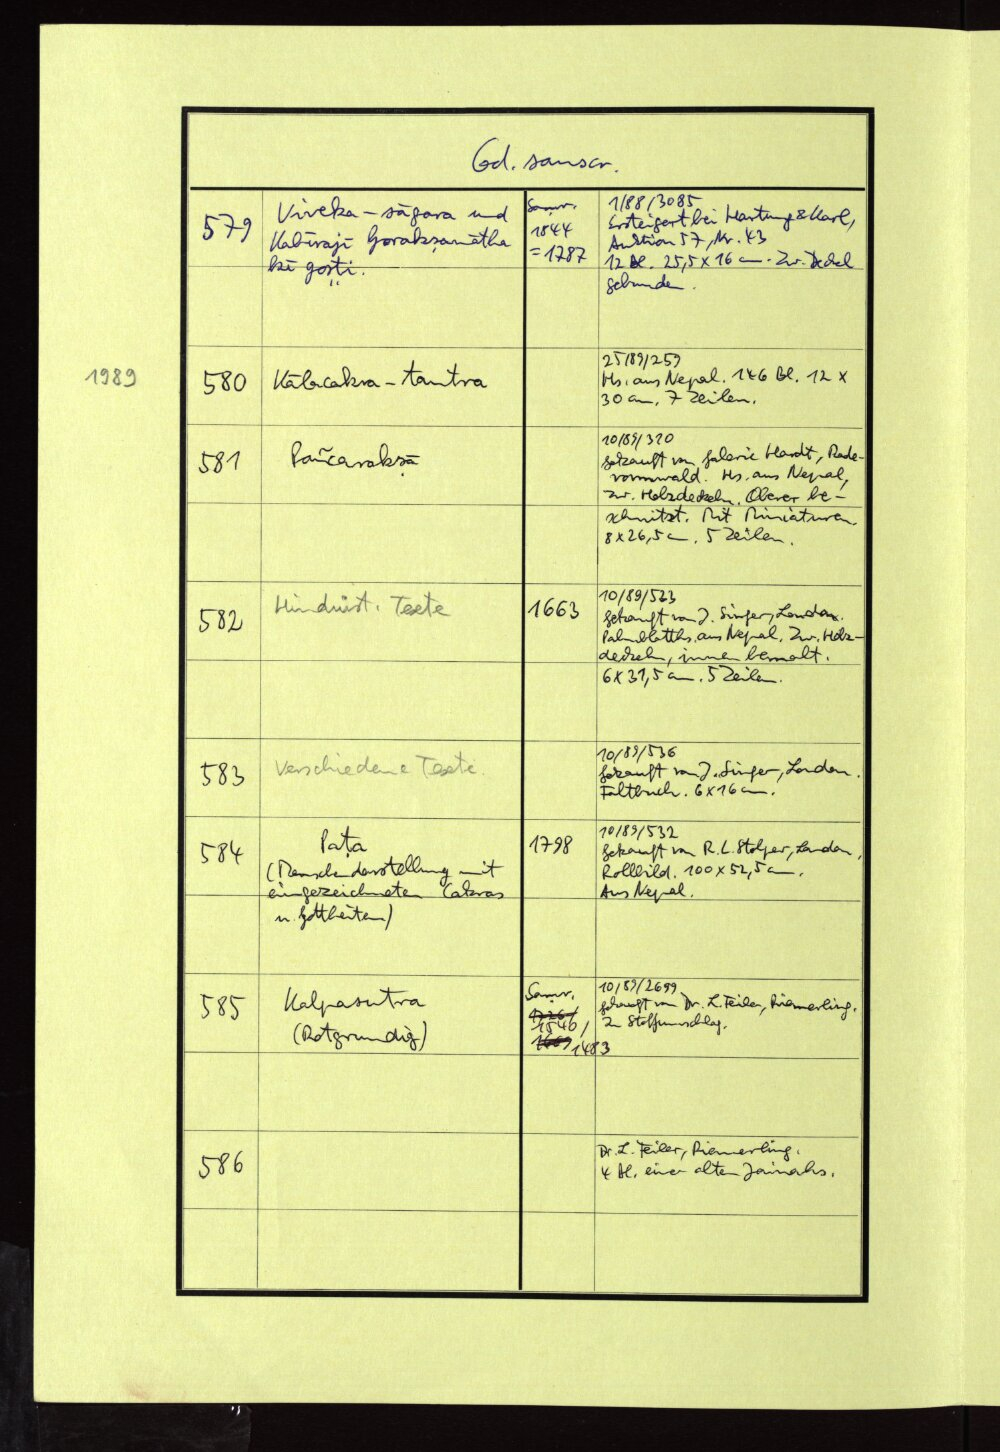 Cod. sanscr.
579
Viveka-sāgara und
Kabīrajī Gorakṣanātha
kī goṣṭi.
Saṃv.
1844
= 1787
1/88/3085
Ersteigert bei Hartung & Karl,
Auktion 57, Nr. 43
12 Bl. 25,5 x 16 cm. Zw. Deckel
gebunden.
1989
580
Kālacakra-tantra
25/89/259
Hs. aus Nepal. 146 Bl. 12 x
30 cm. 7 Zeilen.
581
Pañcarakṣā
10/89/320
gekauft von Galerie Hardt, Rade-
vormwald. Hs. aus Nepal,
zw. Holzdeckeln. Oberer be-
schnitzt. Mit Miniaturen.
8 x 26,5 cm. 5 Zeilen.
582
Hinduist. Texte
1663
10/89/533
gekauft von J. Singer, London.
Palmblatths. aus Nepal. Zw. Holz-
deckeln, innen bemalt.
6 x 31,5 cm. 5 Zeilen.
583
Verschiedene Texte.
10/89/536
gekauft von J. Singer, London.
Faltbuch. 6 x 16 cm.
584
Paṭa
(Menschendarstellung mit
eingezeichneten Cakras
u. Gottheiten)
1798
10/89/532
gekauft von R. L. Stolper, London,
Rollbild. 100 x 52,5 cm.
Aus Nepal.
585
Kalpasutra
(Rotgrundig)
Saṃv.
1540/
1483
10/89/2699
gekauft von Dr. L. Feiler, Riemerling.
In Stoffumschlag.
586
Dr. L. Feiler, Riemerling.
4 Bl. einer alten Jainahs.